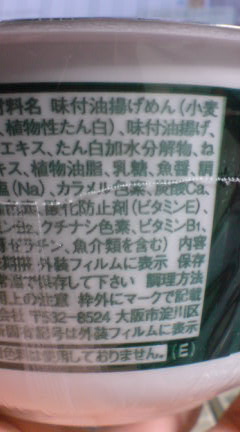 材料名 味付油揚げめん(小麦
、植物性たん白)、味付油揚げ、
エキス、たん白加水分解物、ね
キス、植物油脂、乳糖、魚醤
塩(Na)、カラメル色素、炭酸Ca、
酸化防止剤(ビタミンE)、
クチナシ色素、ビタミンB₁、
ゼラチン、魚介類を含む) 内容
外装フィルムに表示 保存
常温で保存して下さい 調理方法
用上の注意 枠外にマークで記載
会社 〒532-8524 大阪市淀川区
記号は外装フィルムに表示
色料は使用しておりません。(E)